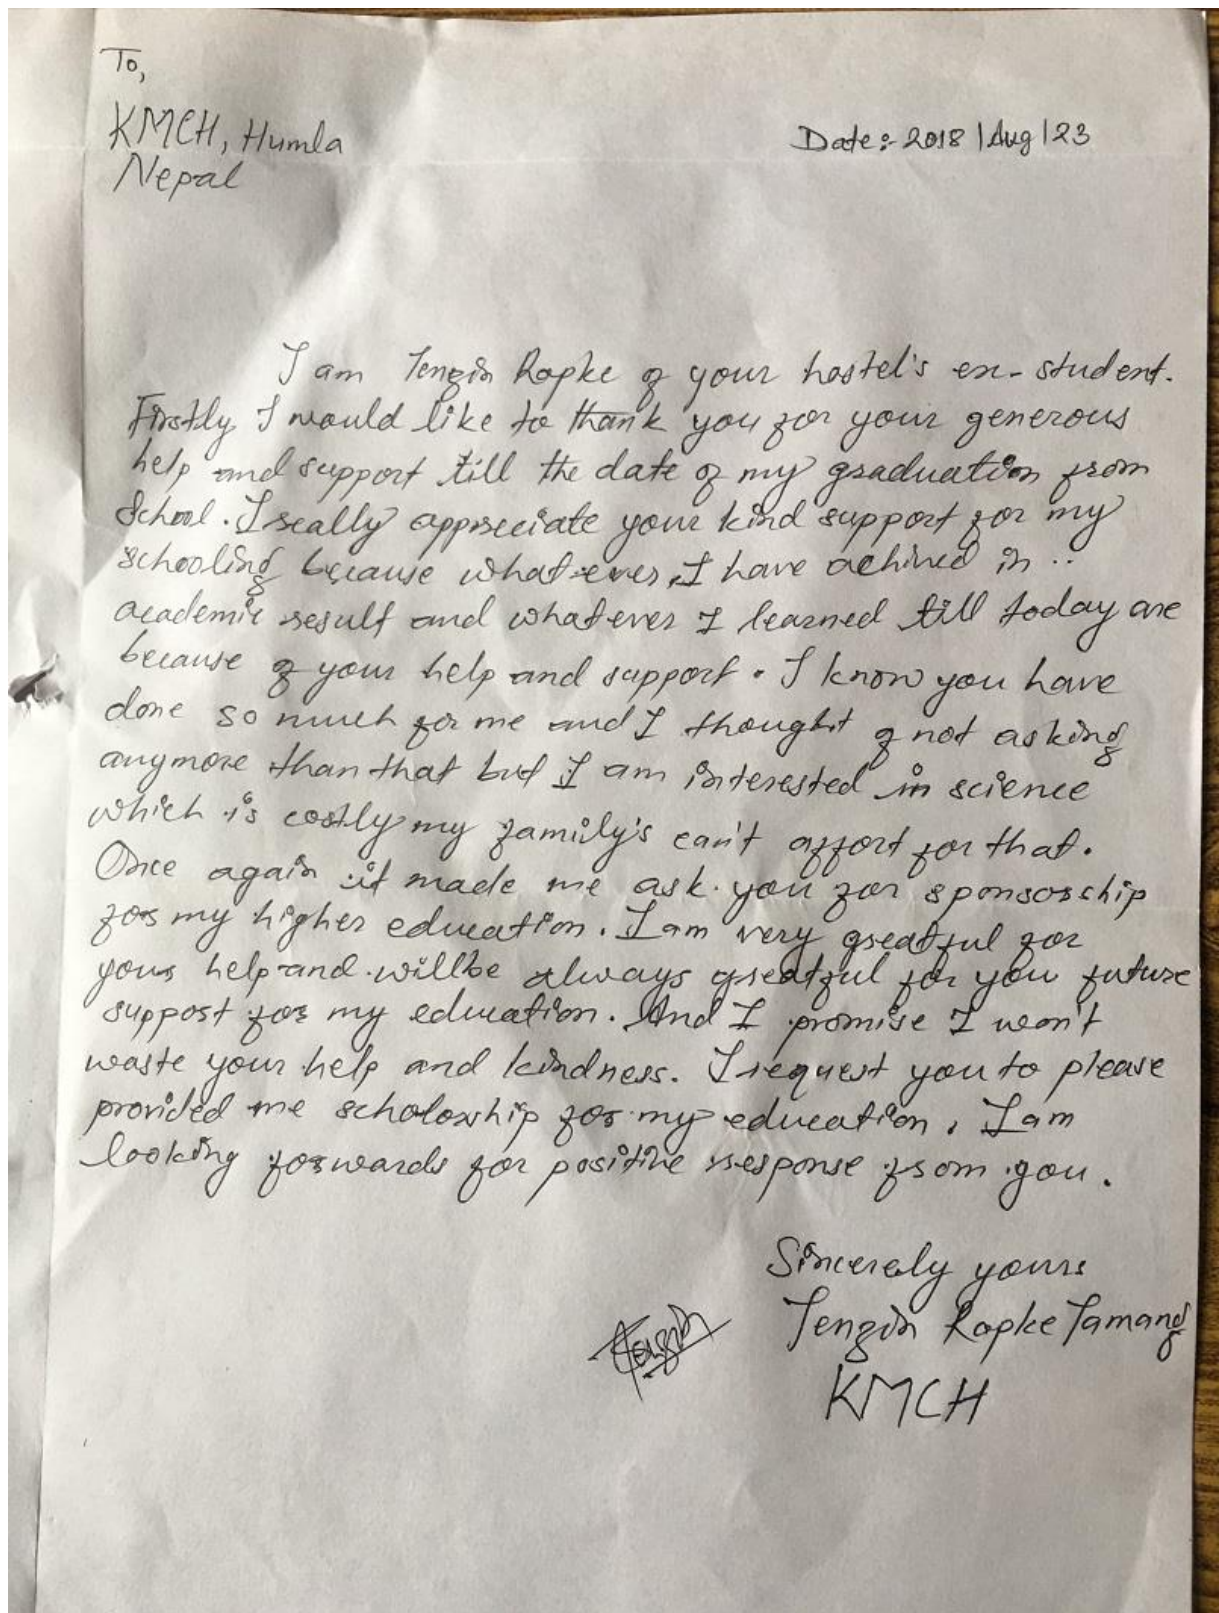 To,
KMCH, Humla
Date:- 2018 | Aug | 23
Nepal
I am Tenzin Ropke of your hostel's ex-student.
Firstly I would like to thank you for your generous
help and support till the date of my graduation from
School. I really appreciate your kind support for my
schooling because what-ever, I have achived in ..
academic result and whatever I learned till today are
because of your help and support. I know you have
done so much for me and I thought of not asking
anymore than that but I am interested in science
which is costly my family's can't affort for that.
Once again it made me ask you for sponsorship
for my higher education. I am very greatful for
your help and will be always greatful for you future
support for my education. And I promise I won't
waste your help and kindness. I request you to please
provided me scholorship for my education. I am
looking forwards for positive response from you.
Sincerely yours
Tenzin Ropke Tamang
Tenzin
KMCH